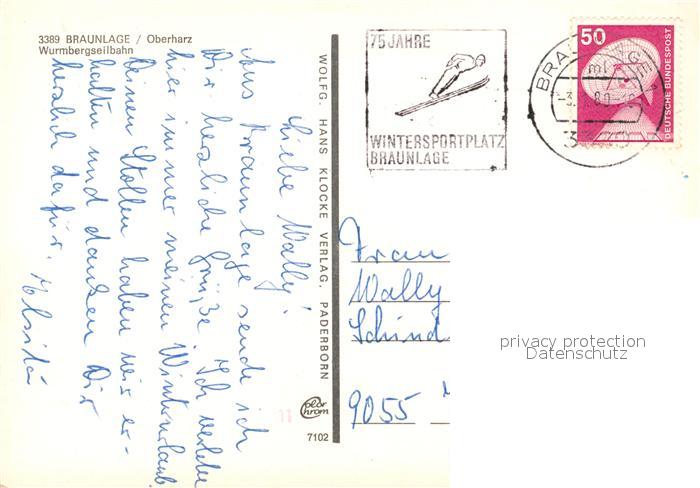 3389 BRAUNLAGE / Oberharz
Wurmbergseilbahn
Liebe Wally!
Aus Braunlage sende ich
Dir herzliche Grüße. Ich verlebe
hier immer meinen Winterurlaub
Deinen Stollen haben wir er-
halten und danken Dir
herzlich dafür.
WOLFG. HANS KLOCKE VERLAG, PADERBORN
Color
Chrom
7102
11
75 JAHRE
WINTERSPORTPLATZ
BRAUNLAGE
50
DEUTSCHE BUNDESPOST
Frau
Wally
Schind
9055
privacy protection
Datenschutz